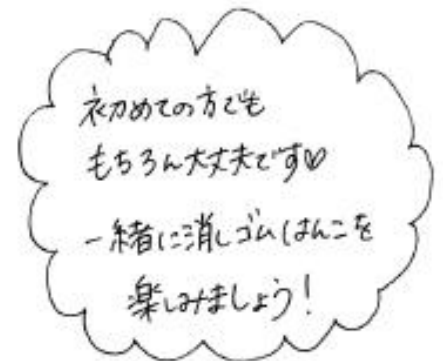 初めての方でも
もちろん大丈夫です♡
一緒に消しゴムはんこを
楽しみましょう！